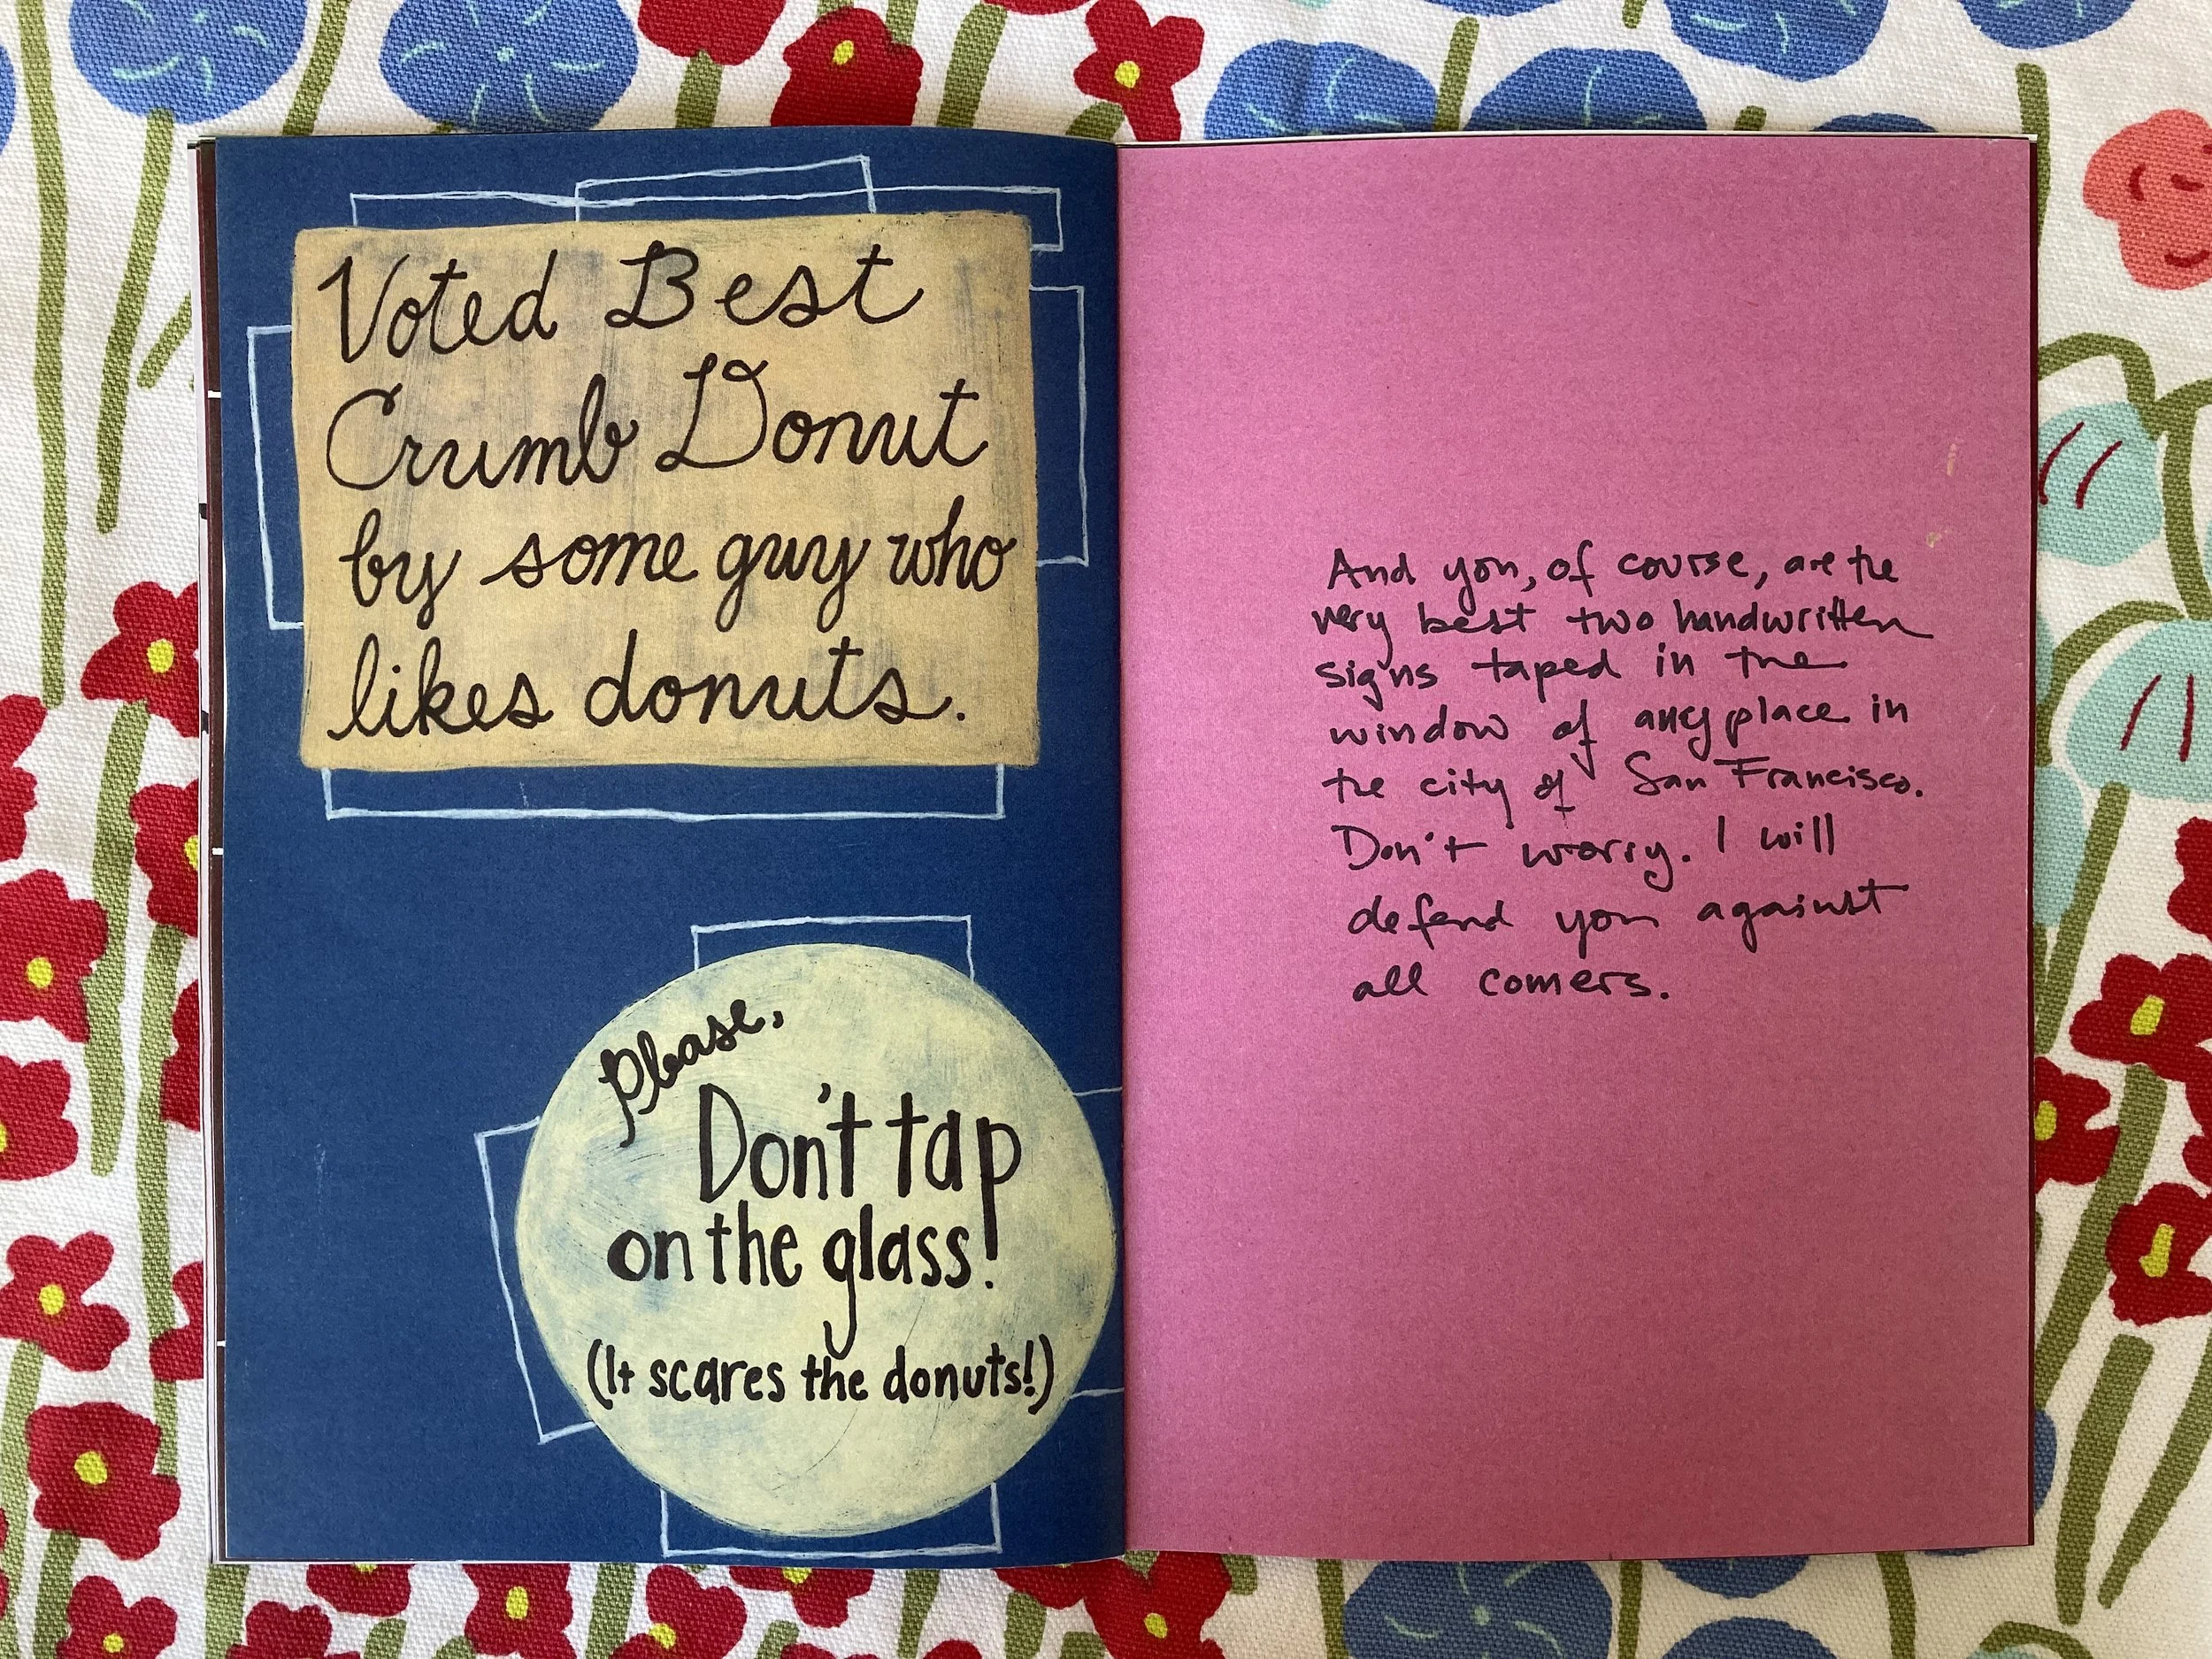 Voted Best
Crumb Donut
by some guy who
likes donuts.
Please,
Don't tap
on the glass!
(It scares the donuts!)
And you, of course, are the
very best two handwritten
signs taped in the
window of any place in
the city of San Francisco.
Don't worry. I will
defend you against
all comers.